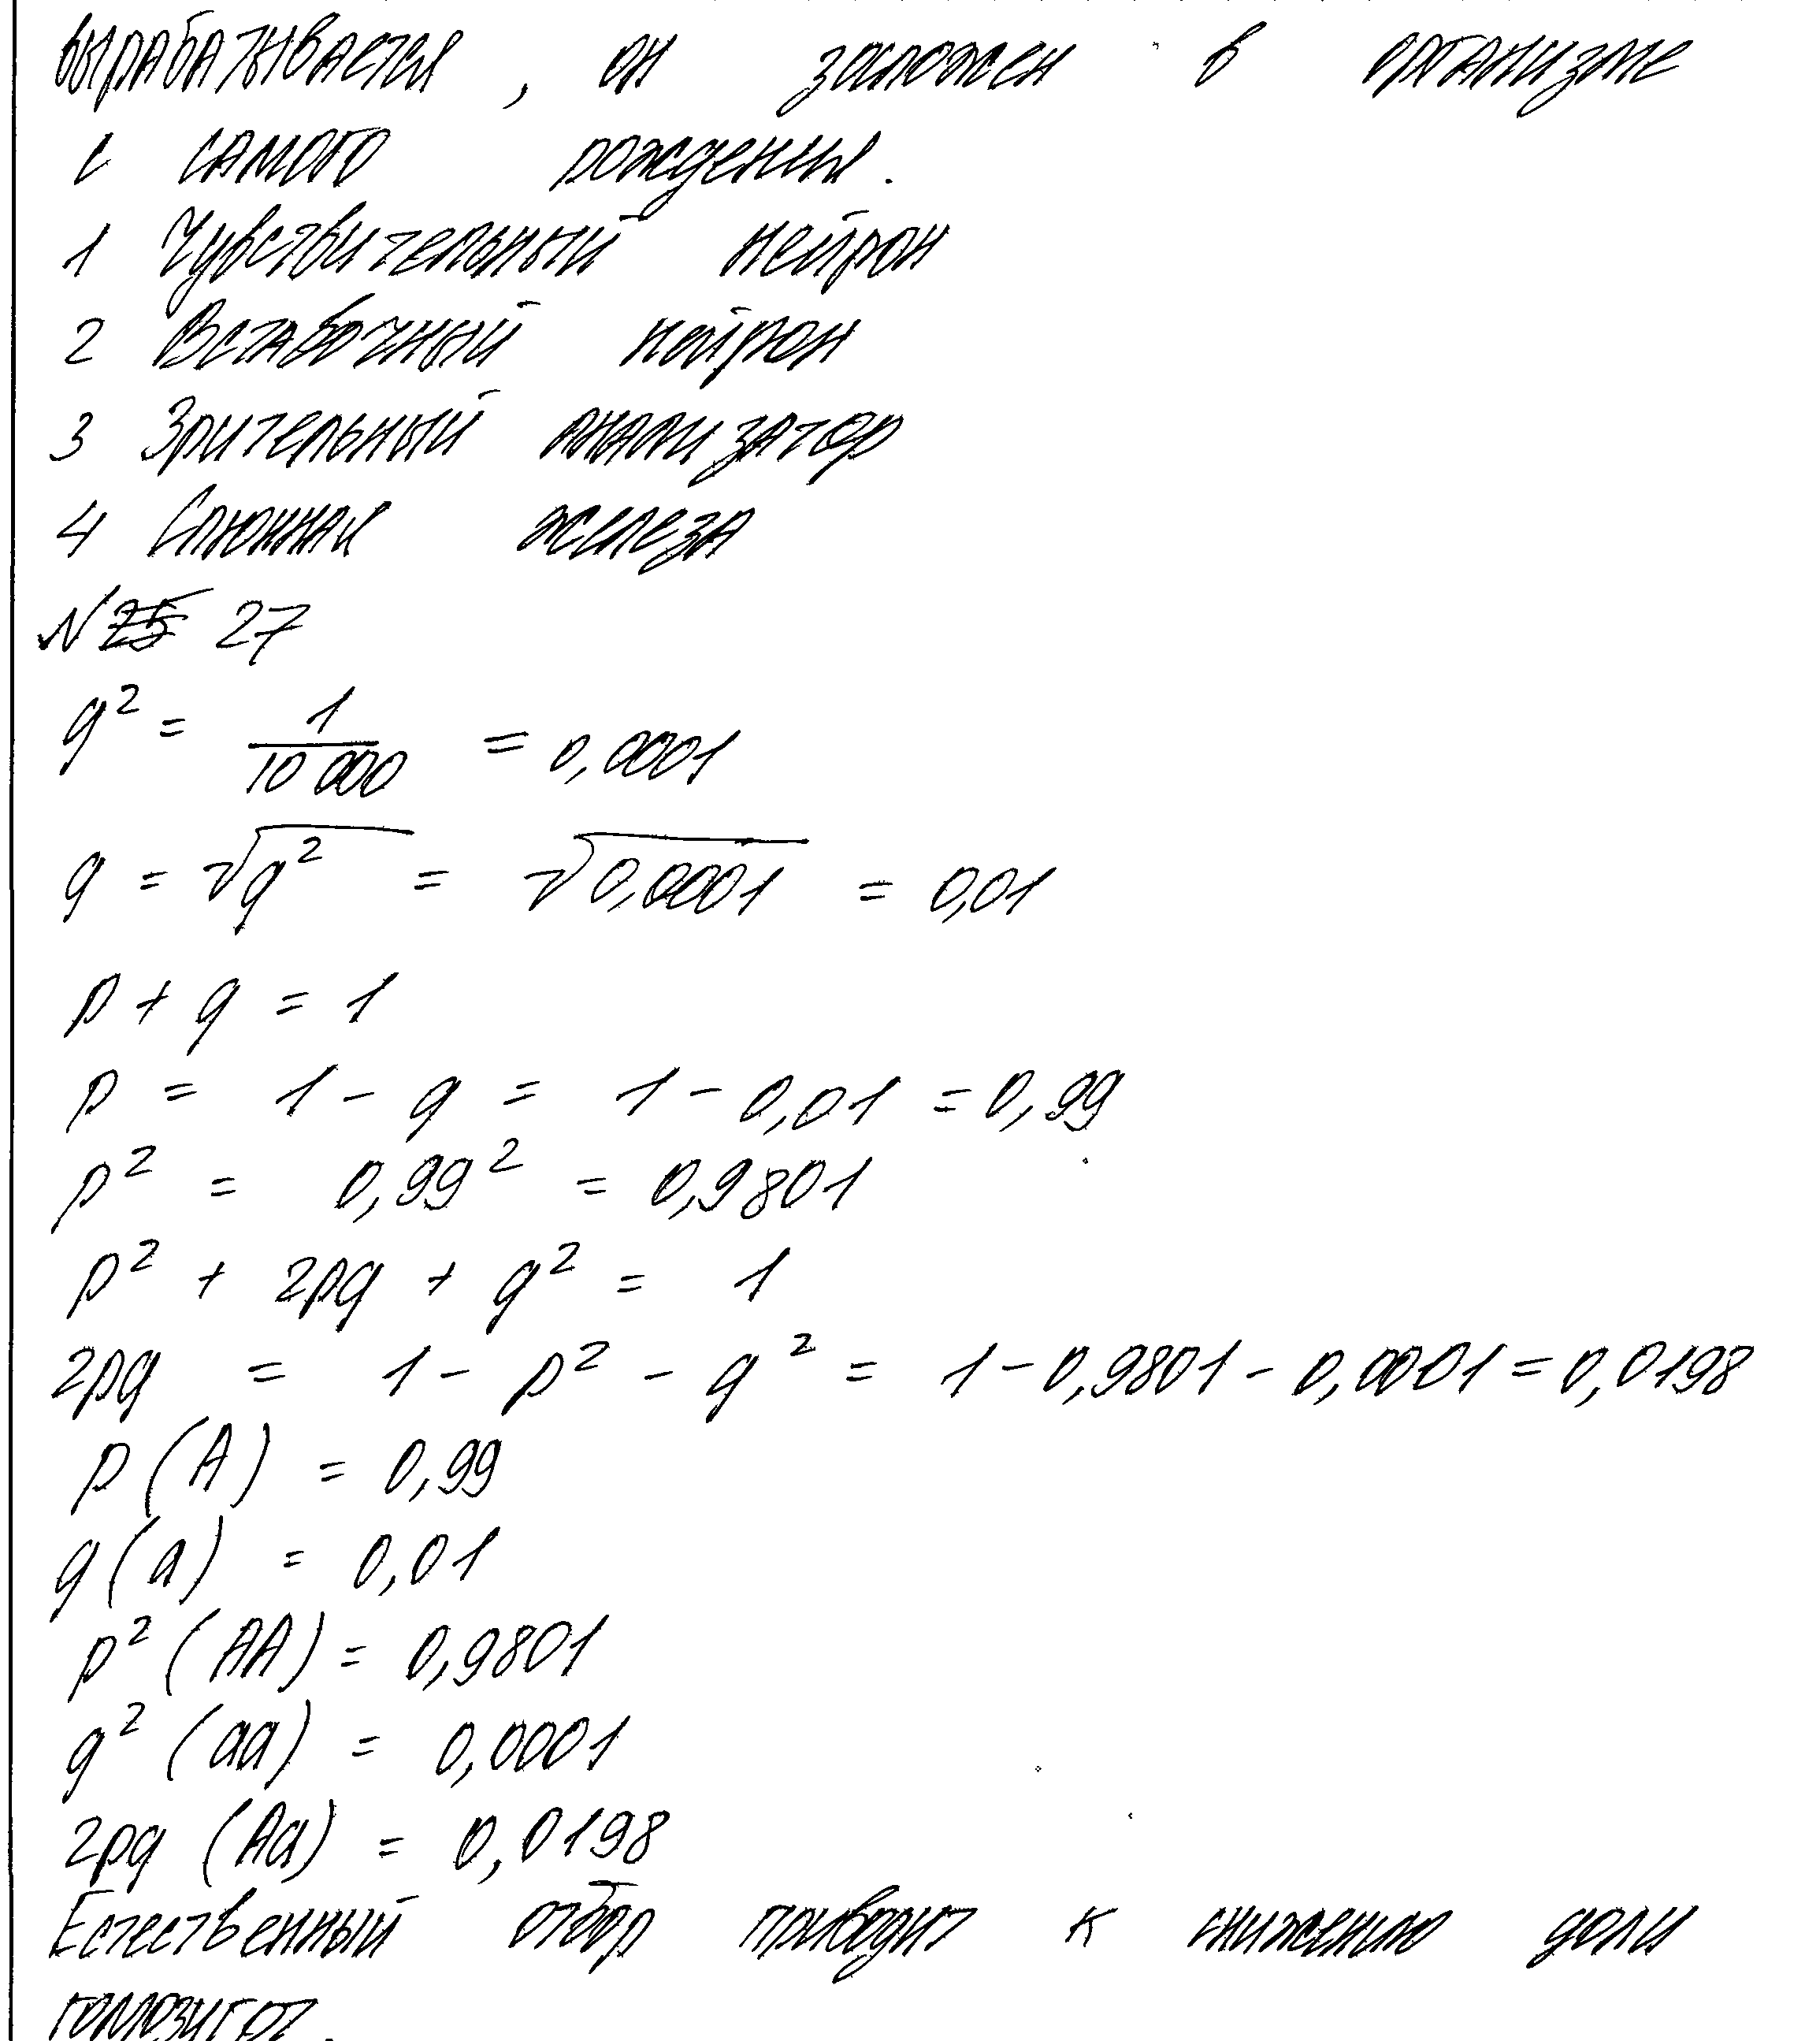 вырабатывается, он заложен в организме
с самого рождения.
1 Чувствительный нейрон
2 Вставочный нейрон
3 Зрительный анализатор
4 Слюнная железа
N 25 27
q² = 1/10 000 = 0,0001
q = √q² = √0,0001 = 0,01
p + q = 1
p = 1 - q = 1 - 0,01 = 0,99
p² = 0,99² = 0,9801
p² + 2pq + q² = 1
2pq = 1 - p² - q² = 1 - 0,9801 - 0,0001 = 0,0198
p(A) = 0,99
q(a) = 0,01
p² (AA) = 0,9801
q² (aa) = 0,0001
2pq (Aa) = 0,0198
Естественный отбор приводит к снижению доли
гомозигот.